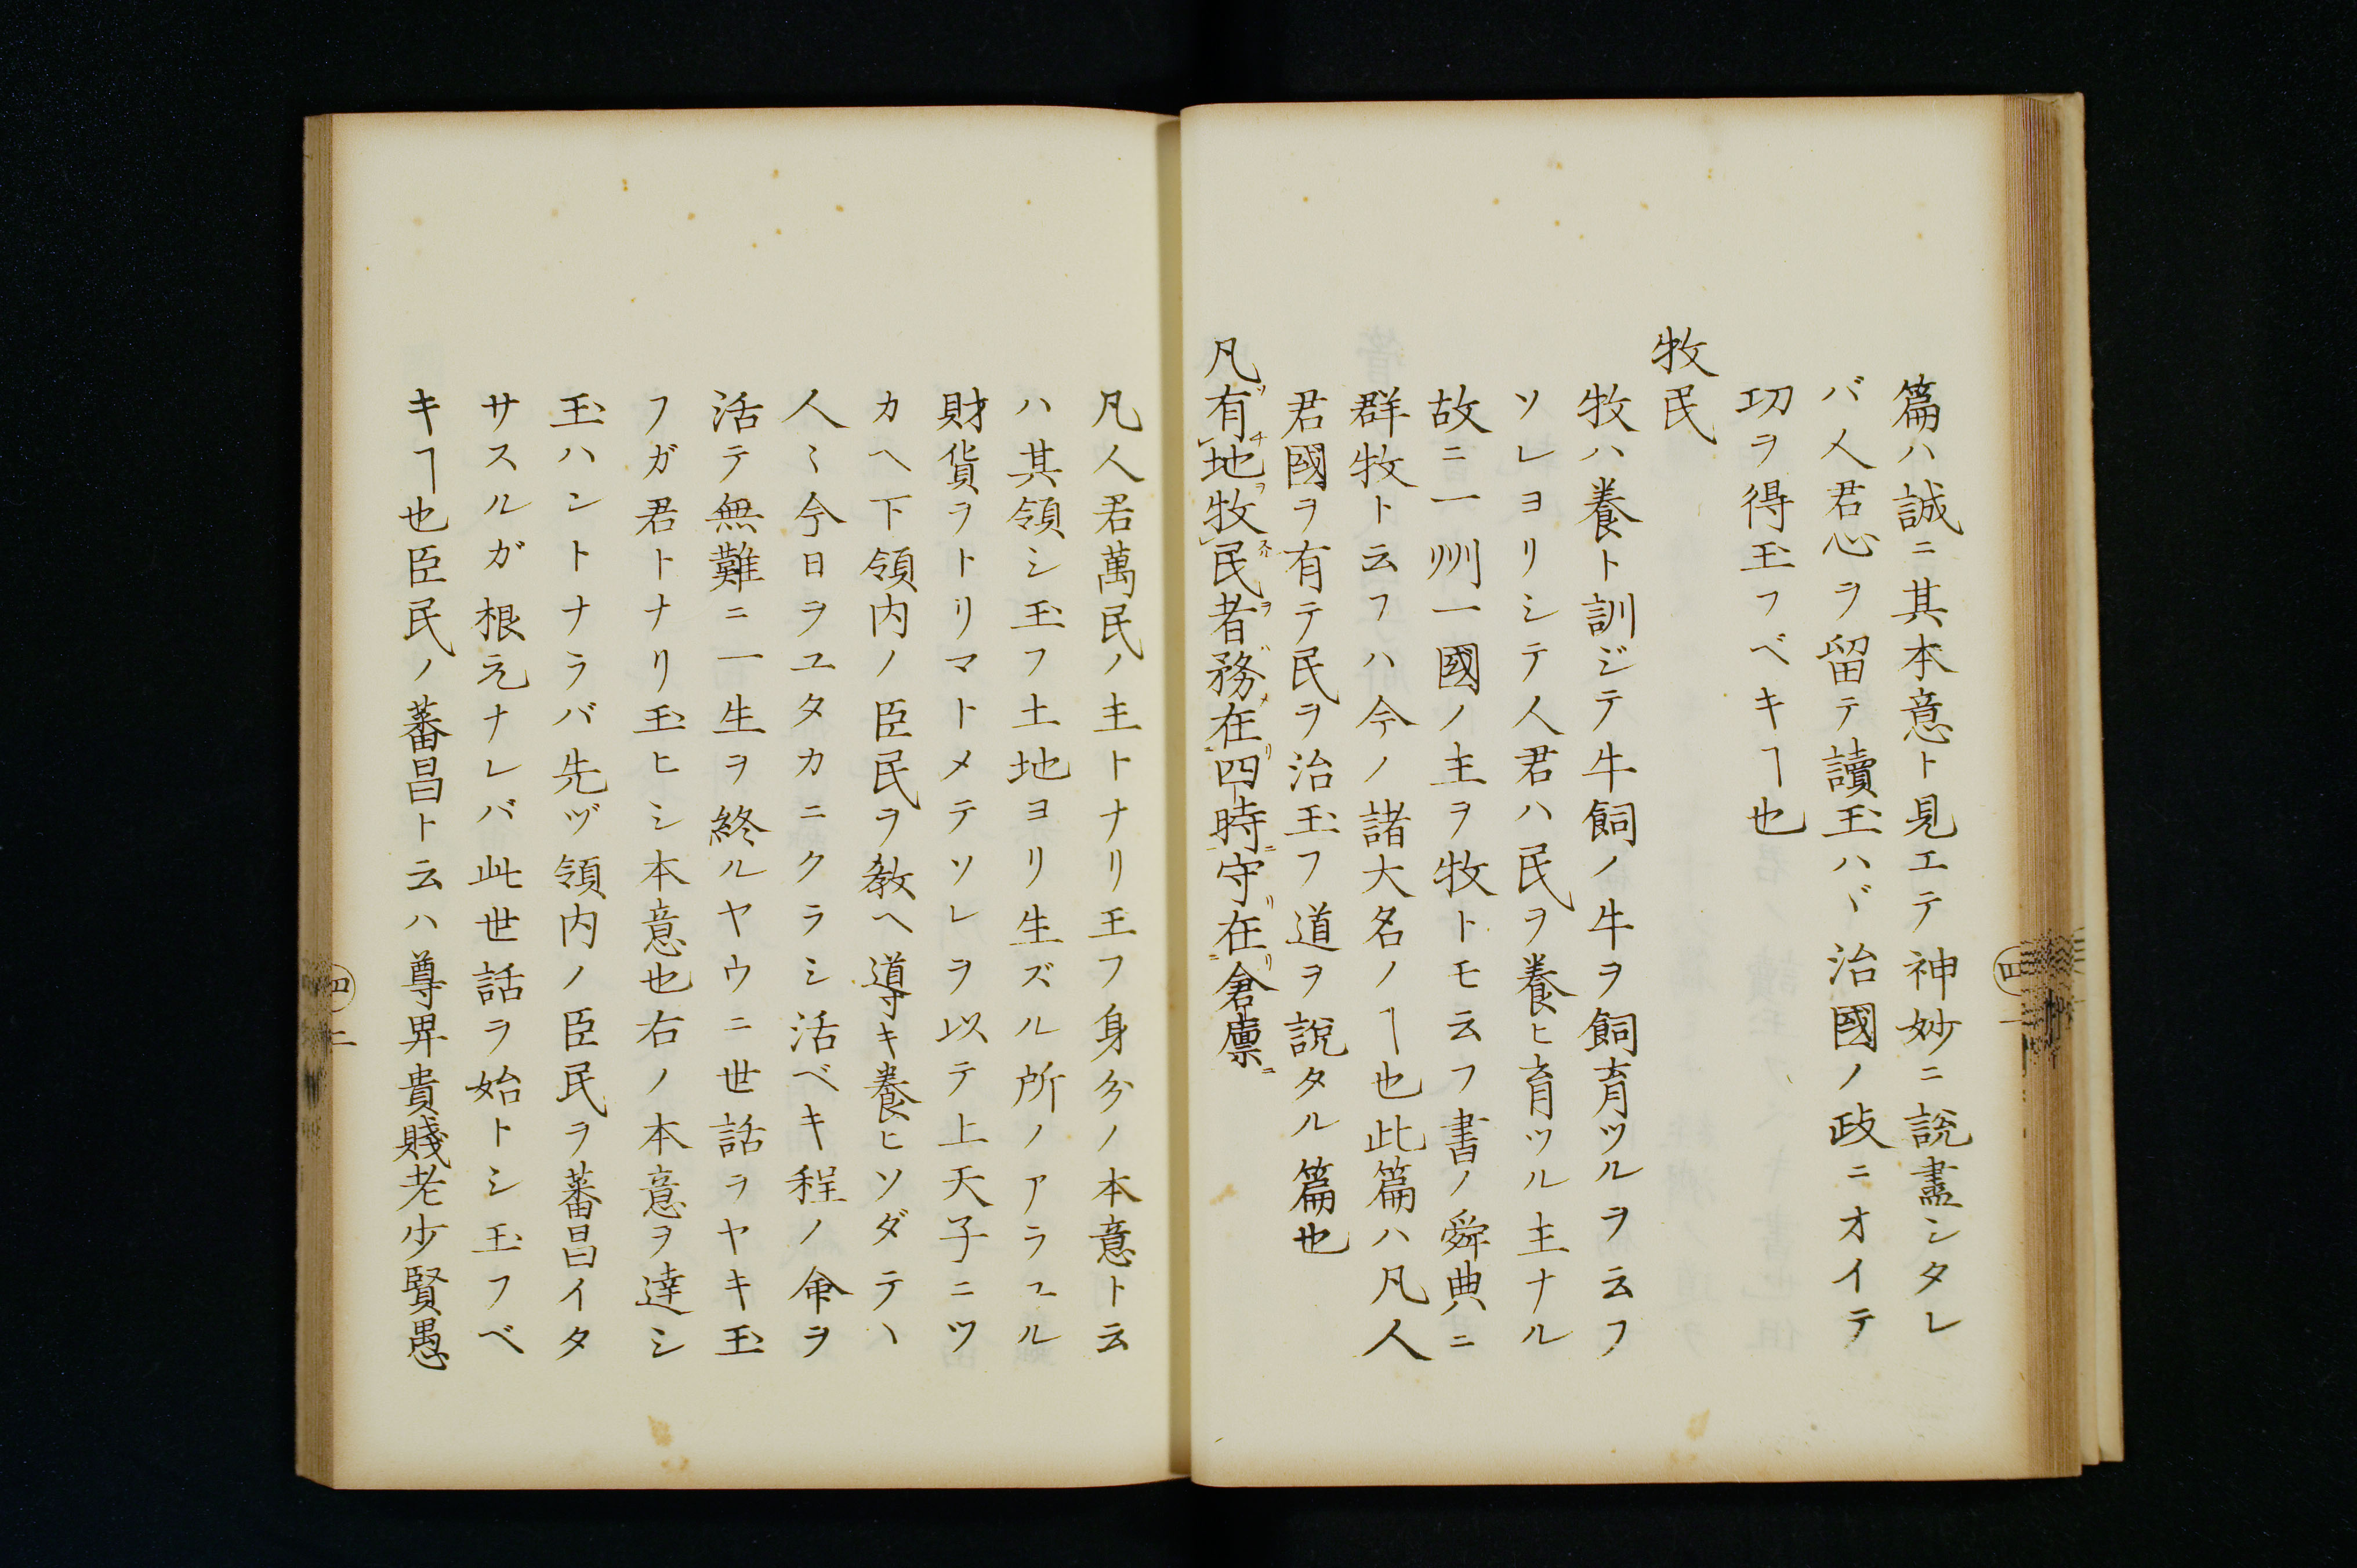 篇ハ誠ニ其本意ト見エテ神妙ニ說盡シタレ
バ人君心ヲ留テ讀玉ハヾ治國ノ政ニオイテ
功ヲ得玉フベキヿ也
牧民
牧ハ養ト訓ジテ牛飼ノ牛ヲ飼育ツルヲ云フ
ソレヨリシテ人君ハ民ヲ養ヒ育ツル主ナル
故ニ一州一國ノ主ヲ牧トモ云フ書ノ舜典ニ
群牧ト云フハ今ノ諸大名ノヿ也此篇ハ凡人
君國ヲ有テ民ヲ治玉フ道ヲ說タル篇也
凡有地牧民者務在四時守在倉廩
凡人君萬民ノ主トナリ玉フ身分ノ本意ト云
ハ其領シ玉フ土地ヨリ生ズル所ノアラユル
財貨ヲトリマトメテソレヲ以テ上天子ニツ
カヘ下領内ノ臣民ヲ敎ヘ導キ養ヒソダテハ
人〻今日ヲユタカニクラシ活ベキ程ノ命ヲ
活テ無難ニ一生ヲ終ルヤウニ世話ヲヤキ玉
フガ君トナリ玉ヒシ本意也右ノ本意ヲ達シ
玉ハントナラバ先ヅ領内ノ臣民ヲ蕃昌イタ
サスルガ根元ナレバ此世話ヲ始トシ玉フベ
キヿ也臣民ノ蕃昌ト云ハ尊卑貴賤老少賢愚
四
一
四
二